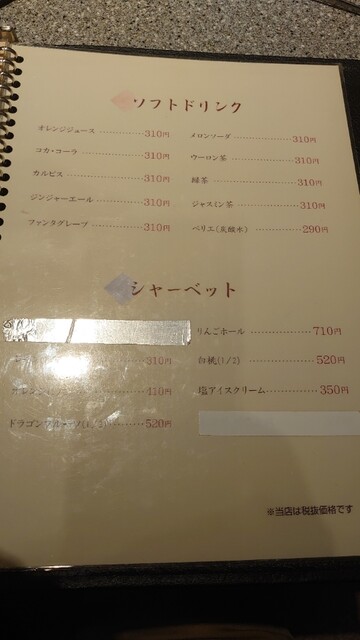 ソフトドリンク
オレンジジュース ………… 310円
コカ・コーラ ………… 310円
カルピス ………… 310円
ジンジャーエール ………… 310円
ファンタグレープ ………… 310円
メロンソーダ ………… 310円
ウーロン茶 ………… 310円
緑茶 ………… 310円
ジャスミン茶 ………… 310円
ペリエ(炭酸水) ………… 290円
シャーベット
310円
オレンジ ………… 410円
ドラゴンフルーツ(1/2) ………… 520円
りんごホール ………… 710円
白桃(1/2) ………… 520円
塩アイスクリーム ………… 350円
※当店は税抜価格です